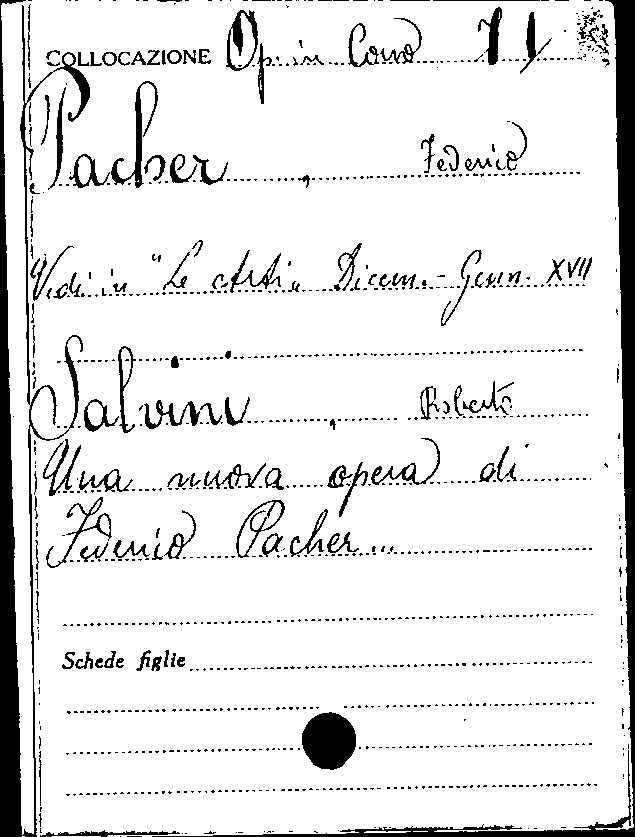 COLLOCAZIONE Op. in Corso 71
Pacher, Federico
Vedi in "Le Arti" Dicem.-Genn. XVII
Salvini, Roberto
Una nuova opera di
Federico Pacher...
Schede figlie